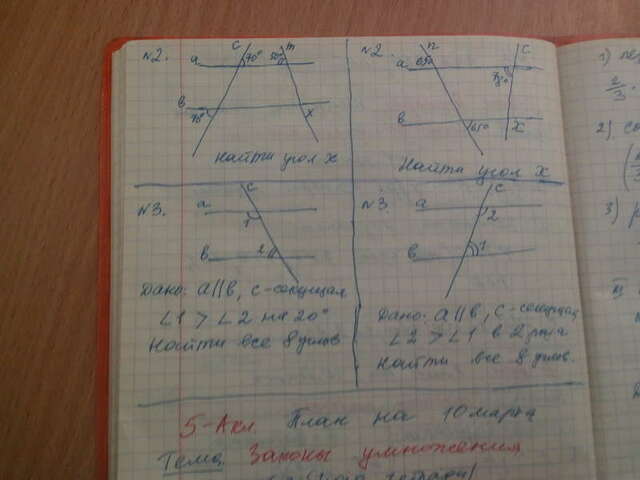 №2.
c
m
a
70°
50°
в
70°
x
Найти угол x
№2.
n
c
a
65°
78°
в
65°
x
Найти угол x
№3.
c
a
1
в
2
Дано: a||в, c-секущая
∠1 > ∠2 на 20°
Найти все 8 углов
№3.
c
a
2
в
1
Дано: a||в, c-секущая
∠2 > ∠1 в 2 раза
Найти все 8 углов.
5-А кл. План на 10 марта
Тема: Законы умножения
1)
2/3
2)
3)